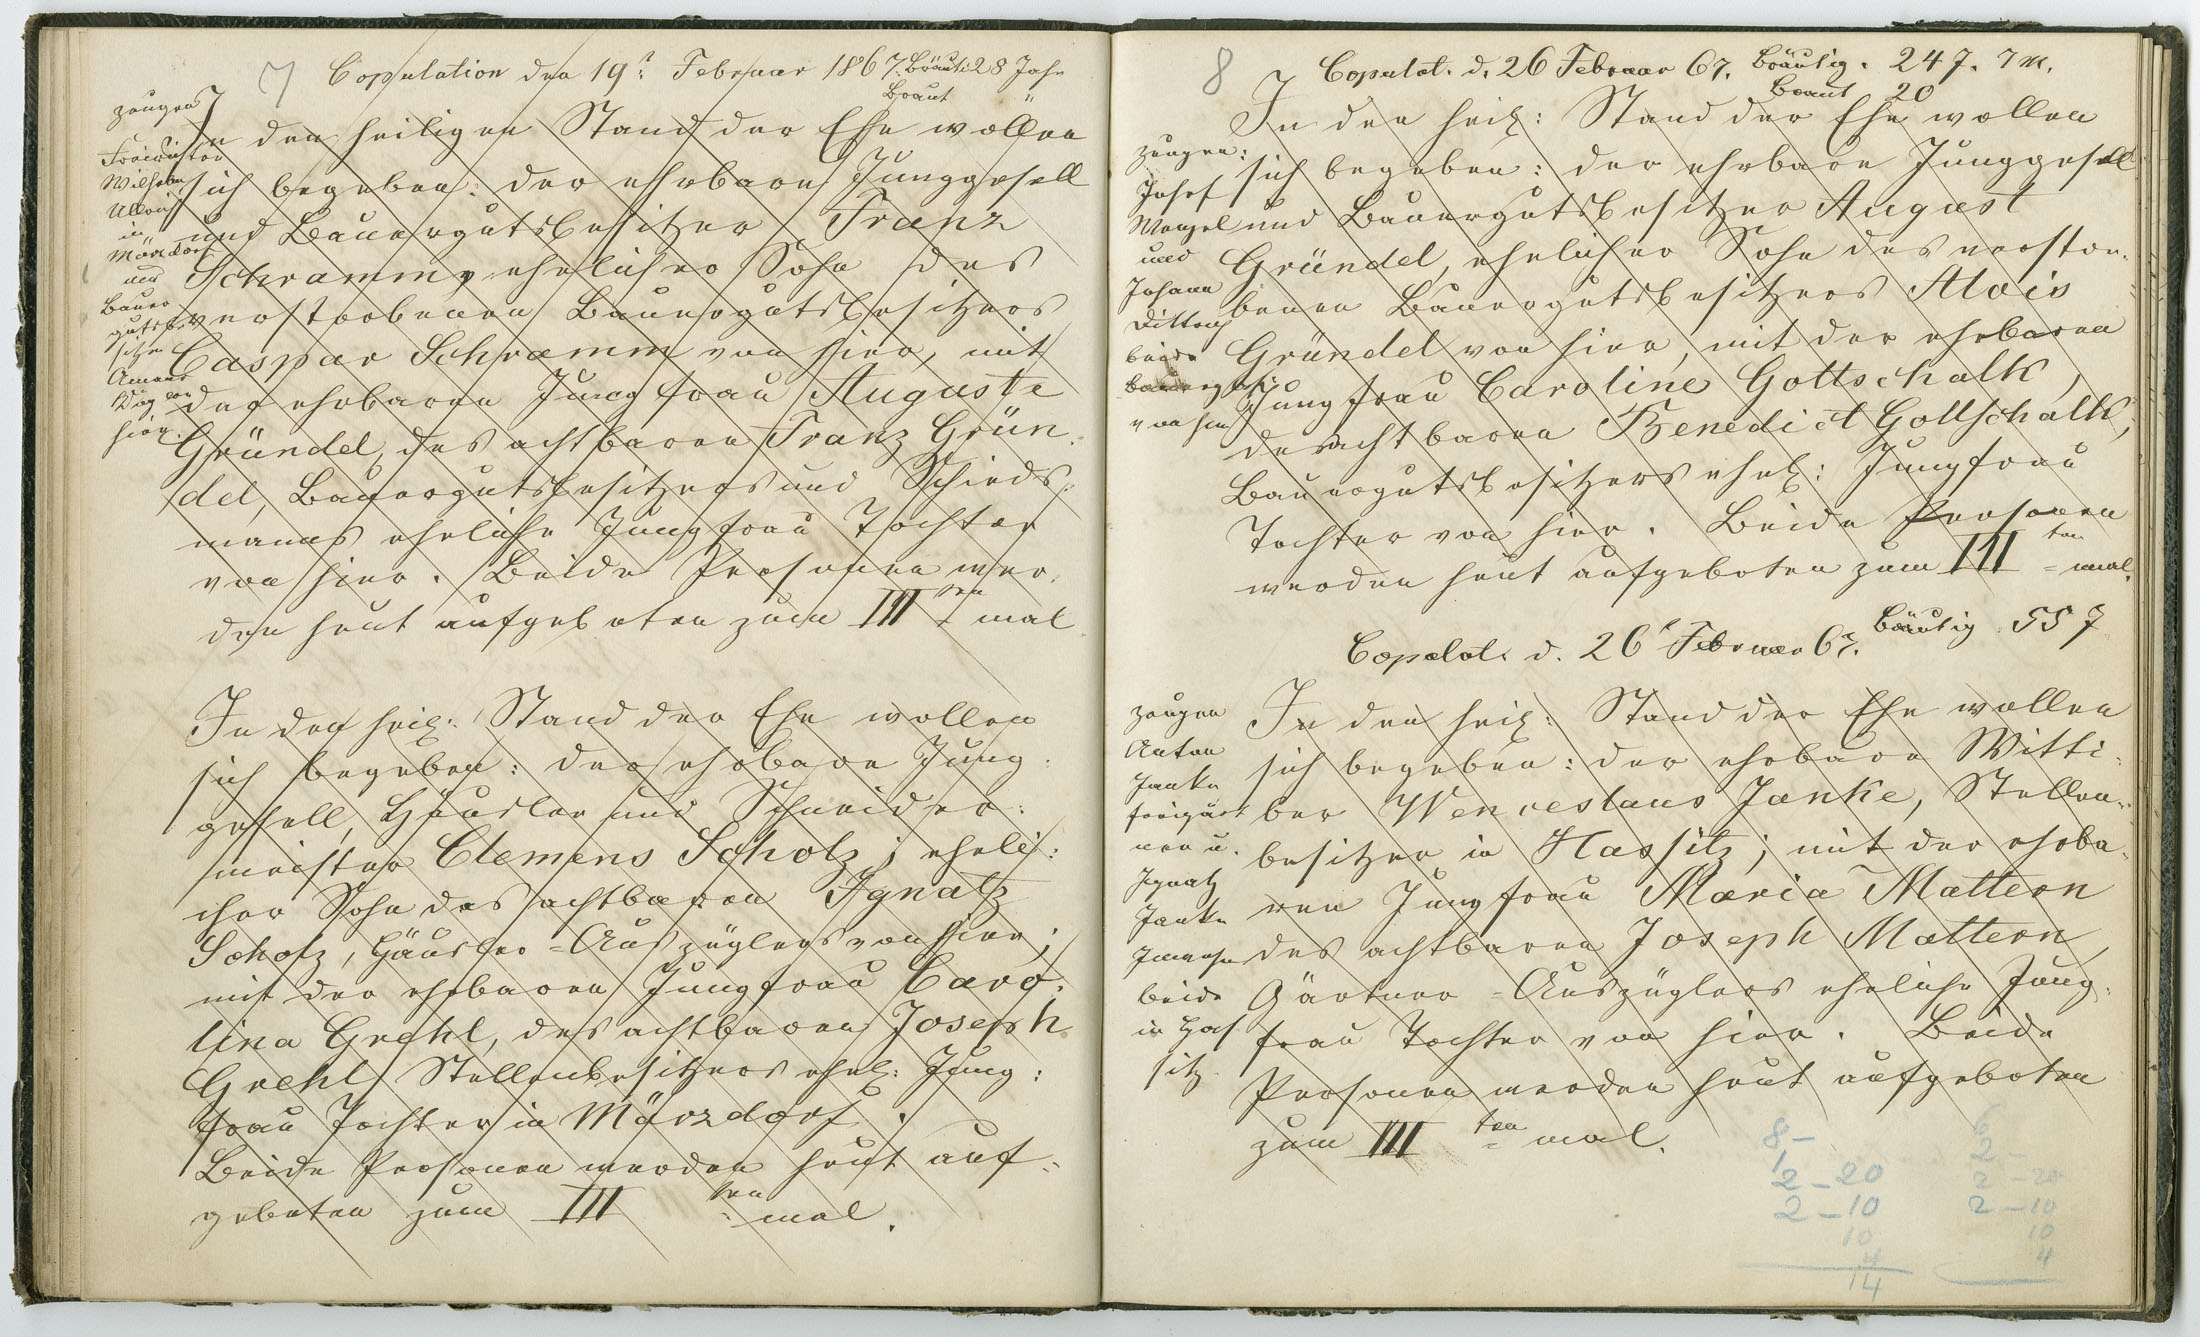 7
Copulation den 19t Februar 1867. Bräuti 28 Jahr
Braut "
Zeugen
Freirichter
Wilhelm
in
Märzdorf
und
Bauer
gutsbe
sitzer
Amand
von
hier.
In den heiligen Stand der Ehe wollen
sich begeben: der ehrbare Junggesell
und Bauergutsbesitzer Franz
Schramm, ehelicher Sohn des
verstorbenen Bauergutsbesitzers
Caspar Schramm von hier, mit
der ehrbaren Jungfrau Auguste
Gründel, des achtbaren Franz Grün-
del, Bauergutsbesitzers und Schieds-
manns eheliche Jungfrau Tochter
von hier. Beide Personen wer-
den heut aufgeboten zum III ten mal
In den heil: Stand der Ehe wollen
sich begeben: der ehrbare Jung-
gesell, Häusler und Schneider-
meister Clemens Scholz; eheli-
cher Sohn des achtbaren Ignatz
Scholz, Häusler-Auszüglers von hier;
mit der ehrbaren Jungfrau Caro-
lina Grehl, des achtbaren Joseph
Grehl Stellenbesitzers ehel: Jung-
frau Tochter in Märzdorf.
Beide Personen werden heut auf-
geboten zum III ten mal.
8
Copulat. d. 26 Februar 67. Bräutig. 24 J. 7 M.
Braut 20
Zeugen:
Josef
Wenzel
und
Johann
Dittrich
beide
Bauergutsb.
von hier
In den heil: Stand der Ehe wollen
sich begeben: der ehrbare Junggesell
und Bauergutsbesitzer August
Gründel, ehelicher Sohn des verstor-
benen Bauergutsbesitzers Alois
Gründel von hier, mit der ehrbaren
Jungfrau Caroline Gottschalk,
des achtbaren Benedict Gottschalk,
Bauergutsbesitzers ehel: Jungfrau
Tochter von hier. Beide Personen
werden heut aufgeboten zum III ten mal.
Copulat. d. 26t Februar 67. Bräutig. 55 J
Zeugen
Anton
Janke
freigärt
ner u.
Ignatz
Janke
beide
in Has
sitz
In den heil: Stand der Ehe wollen
sich begeben: der ehrbare Witti-
ber Wenceslaus Janke, Stellen-
besitzer in Hassitz; mit der ehrba-
ren Jungfrau Maria Mattern
des achtbaren Joseph Mattern,
Gärtner-Auszüglers eheliche Jung-
frau Tochter von hier. Beide
Personen werden heut aufgeboten
zum III ten mal.
8 –
2 – 20
2 – 10
10
4
14
2 –
2 – 20
2 – 10
10
4